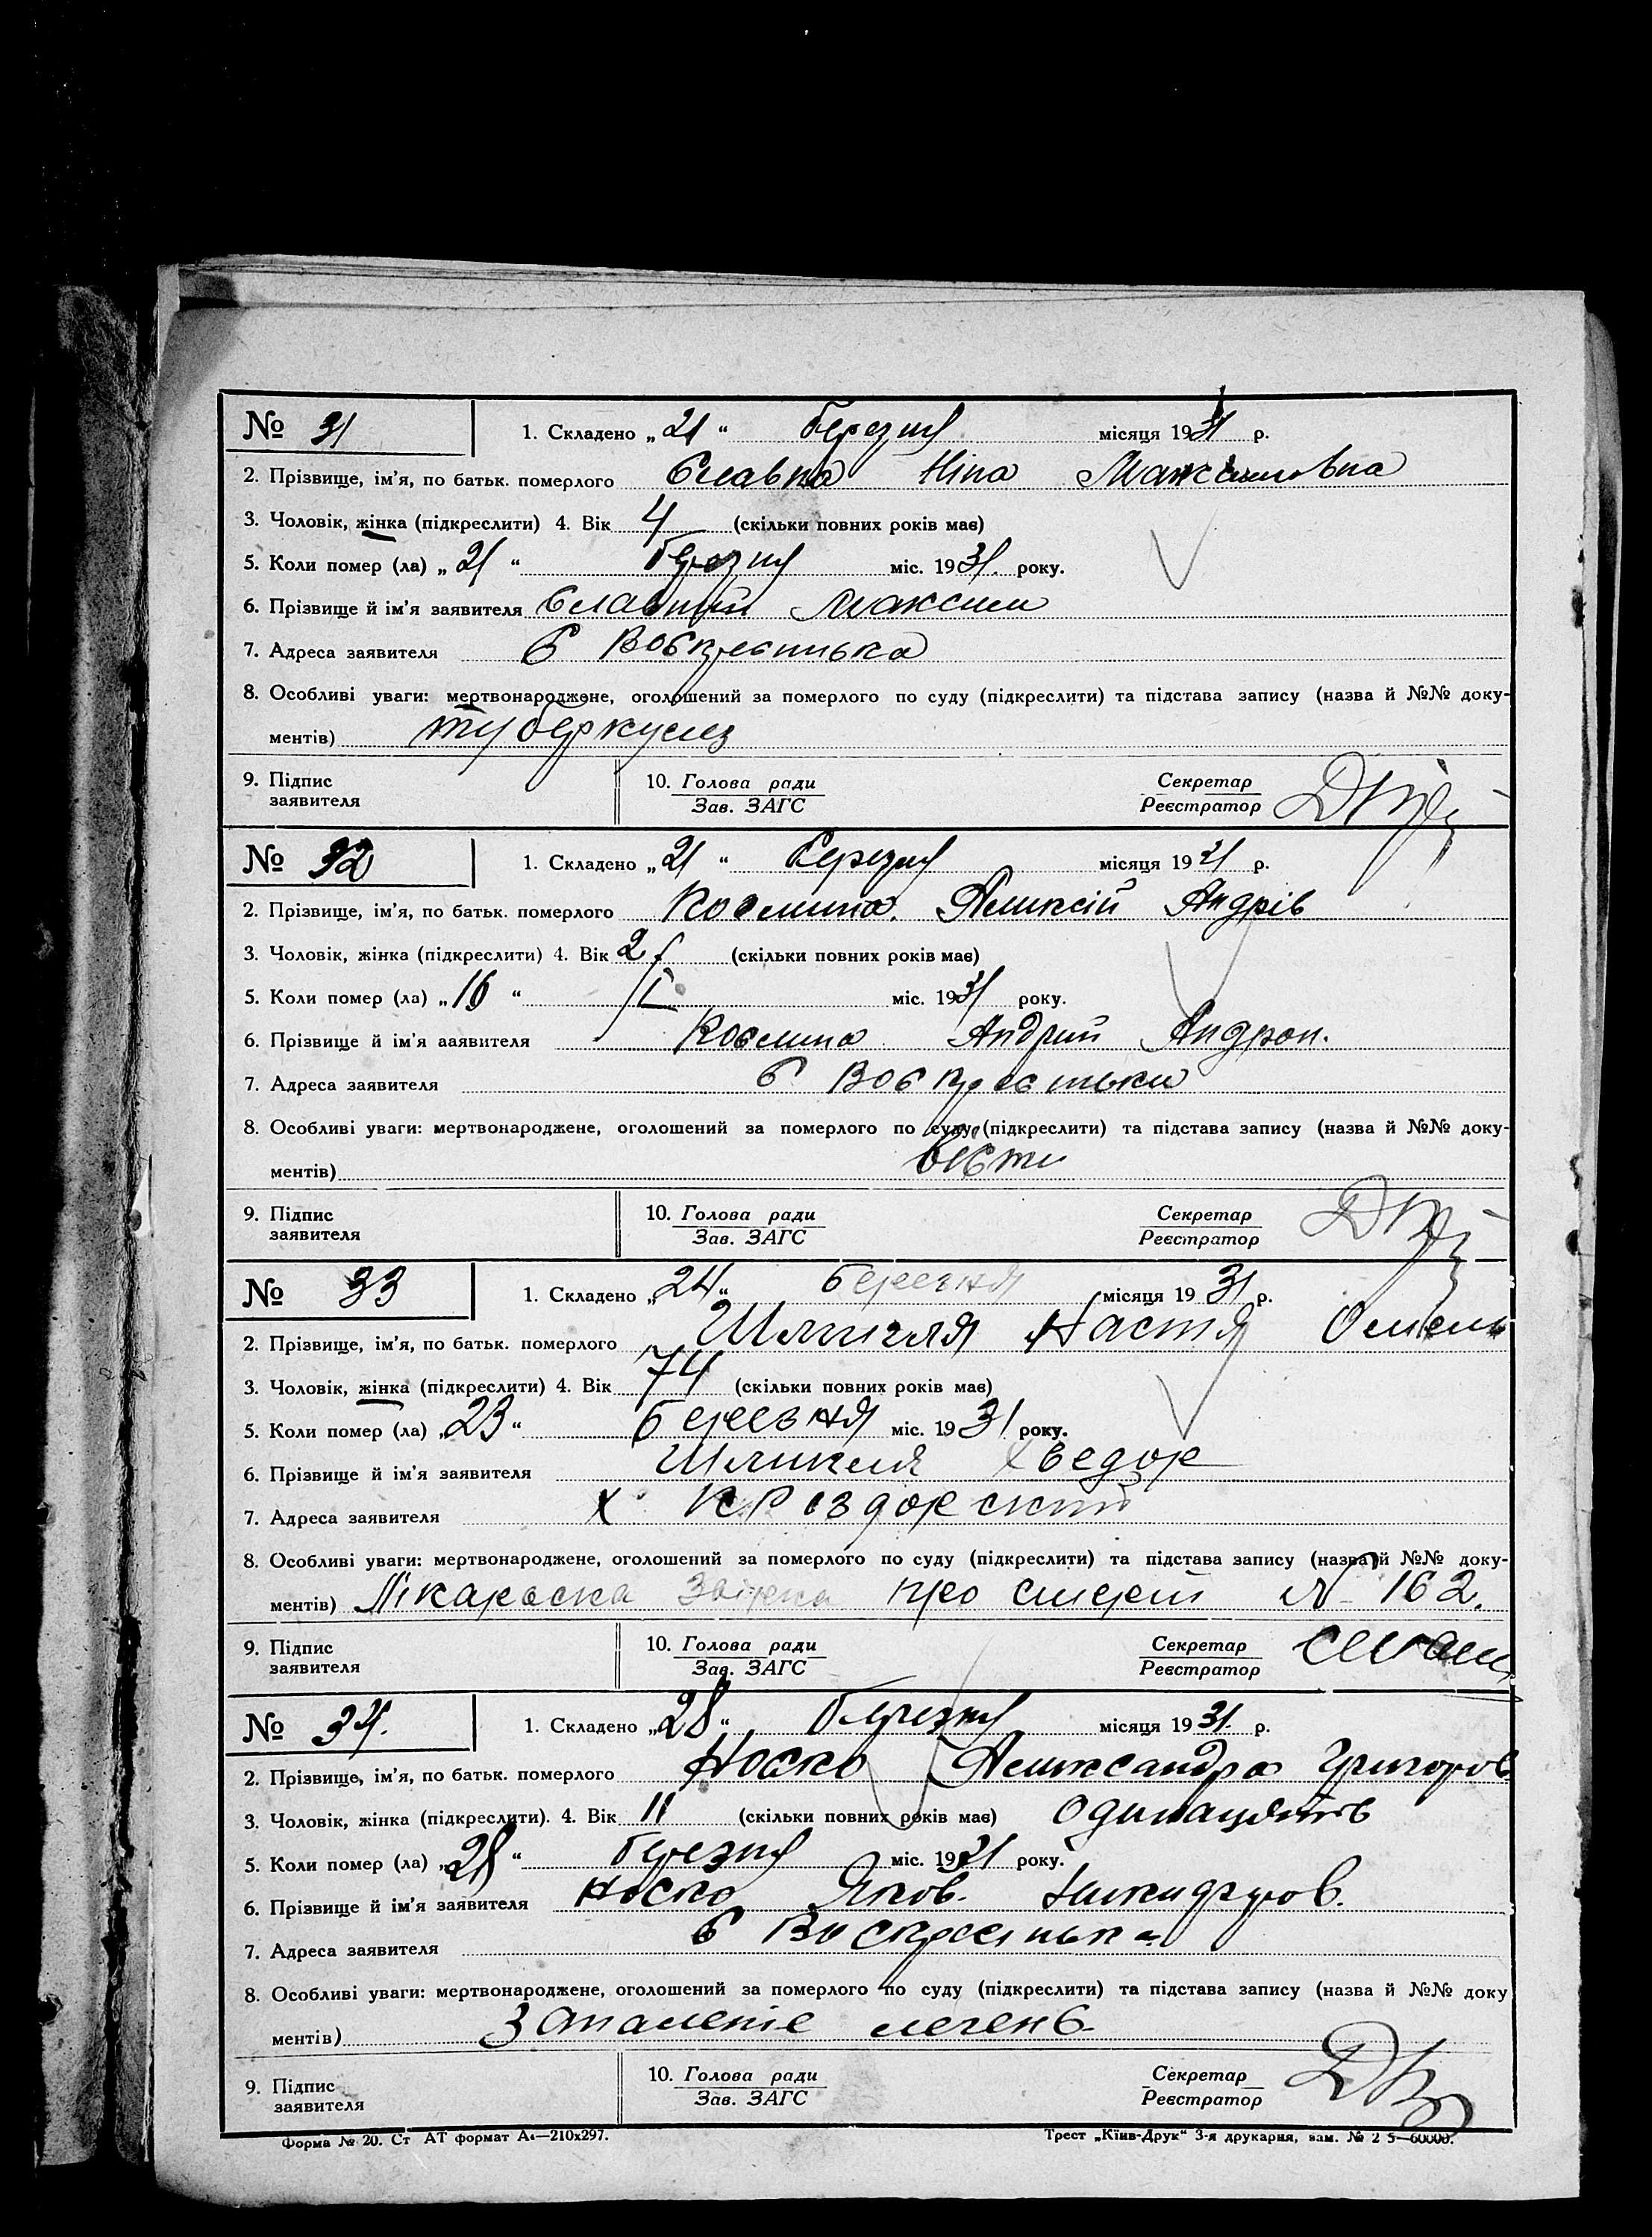 № 31 1. Складено „21“ березня місяця 1931 р.
2. Прізвище, ім'я, по батьк. померлого Славна Ніна Максимовна
3. Чоловік, жінка (підкреслити) 4. Вік 4 (скільки повних років має)
5. Коли помер (ла) „21“ березня міс. 1931. року.
6. Прізвище й ім'я заявителя Славний Максим
7. Адреса заявителя С Воскресинька
8. Особливі уваги: мертвонароджене, оголошений за померлого по суду (підкреслити) та підстава запису (назва й №№ доку-
ментів) туберкульз
9. Підпис заявителя 10. Голова ради Секретар
Зав. ЗАГС Реєстратор
№ 32 1. Складено „21“ березня місяця 1931 р.
2. Прізвище, ім'я, по батьк. померлого Аликсій Андрів
3. Чоловік, жінка (підкреслити) 4. Вік 2 (скільки повних років має)
5. Коли помер (ла) „16“ міс. 1931 року.
6. Прізвище й ім'я заявителя Андрий Андрон.
7. Адреса заявителя С Воскресиньки
8. Особливі уваги: мертвонароджене, оголошений за померлого по суду (підкреслити) та підстава запису (назва й №№ доку-
ментів)
9. Підпис заявителя 10. Голова ради Секретар
Зав. ЗАГС Реєстратор
№ 33 1. Складено „24“ березня місяця 1931 р.
2. Прізвище, ім'я, по батьк. померлого Настя Омельк
3. Чоловік, жінка (підкреслити) 4. Вік 74 (скільки повних років має)
5. Коли помер (ла) „23“ березня міс. 1931 року.
6. Прізвище й ім'я заявителя Хведор
7. Адреса заявителя х.
8. Особливі уваги: мертвонароджене, оголошений за померлого по суду (підкреслити) та підстава запису (назва й №№ доку-
ментів) Лікарська Звірка про смерть № 162.
9. Підпис заявителя 10. Голова ради Секретар
Зав. ЗАГС Реєстратор
№ 34. 1. Складено „28“ березня місяця 1931. р.
2. Прізвище, ім'я, по батьк. померлого Носко Аликсандра Григоров
3. Чоловік, жінка (підкреслити). 4. Вік 11 (скільки повних років має) Одинацять
5. Коли помер (ла) „28“ березня міс. 1931 року.
6. Прізвище й ім'я заявителя Носко Яков. Никифоров.
7. Адреса заявителя С Воскресинька
8. Особливі уваги: мертвонароджене, оголошений за померлого по суду (підкреслити) та підстава запису (назва й №№ доку
ментів) Запаленіе легень
9. Підпис заявителя 10. Голова ради Секретар
Зав. ЗАГС Реєстратор
Форма № 20. Ст АТ формат А4—210х297. Трест „Київ-Друк“ 3-я друкарня, зам. № 2 5—60000.